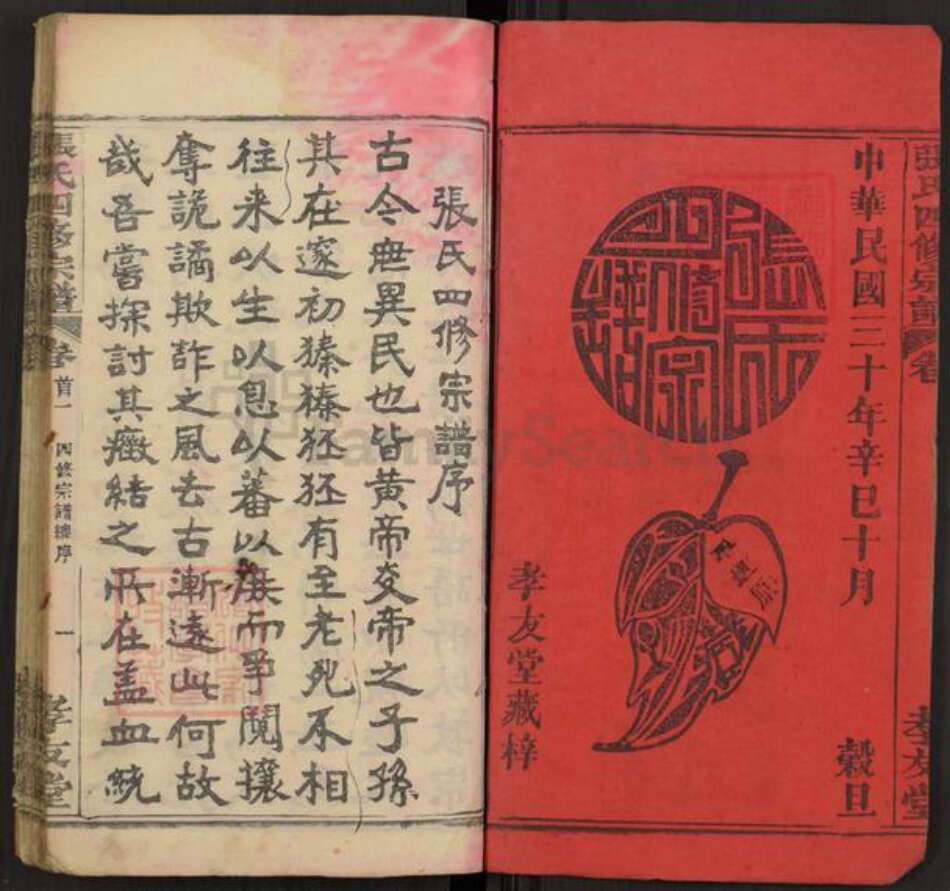 張氏四修宗譜卷
中華民國三十年辛巳十月 穀旦
張氏四修宗譜
孝友堂藏梓
孝友堂
張氏四修宗譜序
古今無異民也皆黃帝炎帝之子孫
其在邃初獉獉狉狉有至老死不相
往来以生以息以蕃以族而爭鬩攘
奪詭譎欺詐之風去古漸遠此何故
哉吾嘗探討其癥結之所在盖血統
張氏四修宗譜 卷首一 四修宗譜總序 一 孝友堂
FamilySearch